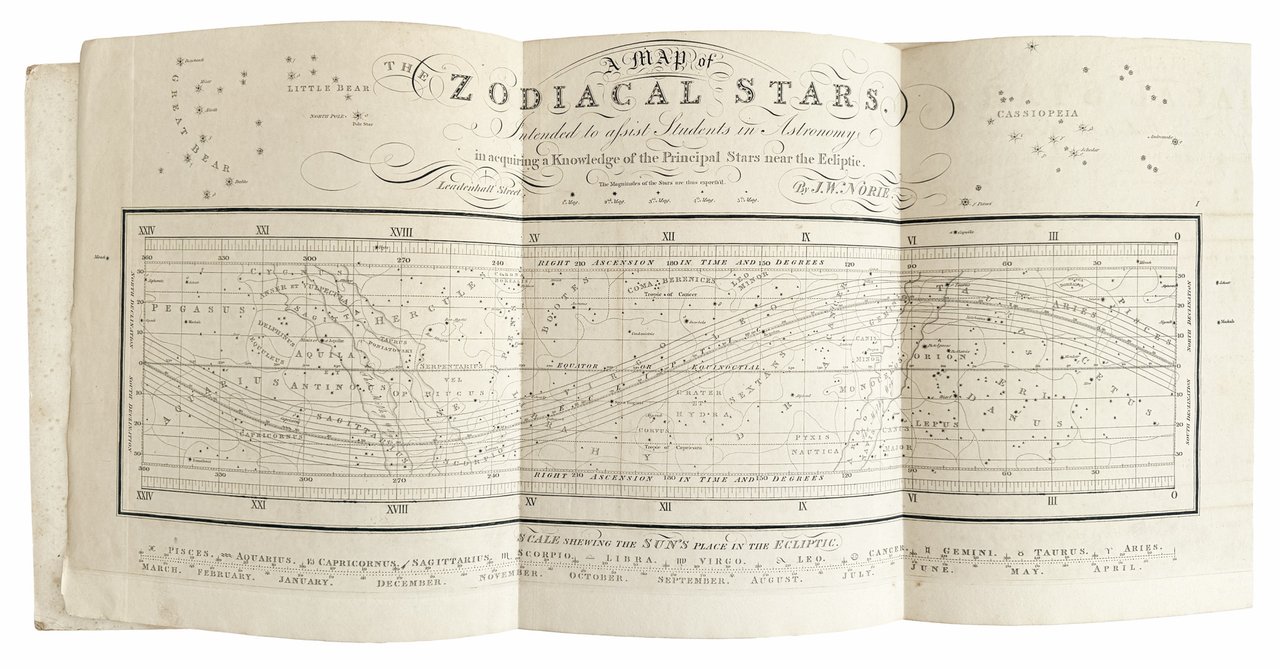 A MAP of
THE ZODIACAL STARS.
Intended to aſsist Students in Astronomy,
in acquiring a Knowledge of the Principal Stars near the Ecliptic.
Leadenhall Street.
By J.W. NORIE
The Magnitudes of the Stars are thus express'd.
1st Mag. 2nd Mag. 3rd Mag. 4th Mag. 5th Mag.
GREAT BEAR
Dubhe
LITTLE BEAR
NORTH POLE
Pole Star
CASSIOPEIA
Schedar
I
XXIV XXI XVIII XV XII IX VI III 0
360 330 300 270 240
RIGHT 210 ASCENSION 180 IN TIME AND 150 DEGREES
120 90 60 30 0
NORTH DECLINATION
SOUTH DECLINATION
30 20 10 0 10 20 30
CYGNUS
ANSER ET VULPECULA
SAGITTA
HERCULES
PEGASUS
DELPHINUS
EQUULEUS
AQUILA
ANTINOUS
TAURUS PONIATOWSKI
SERPENTARIUS
VEL
OPHIUCUS
AQUARIUS
CAPRICORNUS
SAGITTARIUS
SCORPIO
BOOTES
COMA BERENICES
LEO MINOR
Tropic of Cancer
EQUATOR OR EQUINOCTIAL
VIRGO
ECLIPTIC
SEXTANS
CRATER
ET
HYDRA
CORVUS
Tropic of Capricorn
HYDRA
PYXIS
NAUTICA
CANIS MINOR
MONOCEROS
CANIS MAJOR
ORION
LEPUS
ERIDANUS
CETUS
TAURUS
ARIES
PISCES
NORTH DECLINATION
SOUTH DECLINATION
30 20 10 0 10 20 30
360 330 300 270 240
RIGHT 210 ASCENSION 180 IN TIME AND 150 DEGREES
120 90 60 30 0
XXIV XXI XVIII XV XII IX VI III 0
SCALE SHEWING THE SUN'S PLACE IN THE ECLIPTIC.
♓ PISCES. ♒ AQUARIUS. ♑ CAPRICORNUS. ♐ SAGITTARIUS. ♏ SCORPIO. ♎ LIBRA. ♍ VIRGO. ♌ LEO. ♋ CANCER. ♊ GEMINI. ♉ TAURUS. ♈ ARIES.
MARCH. FEBRUARY. JANUARY. DECEMBER. NOVEMBER. OCTOBER. SEPTEMBER. AUGUST. JULY. JUNE. MAY. APRIL.